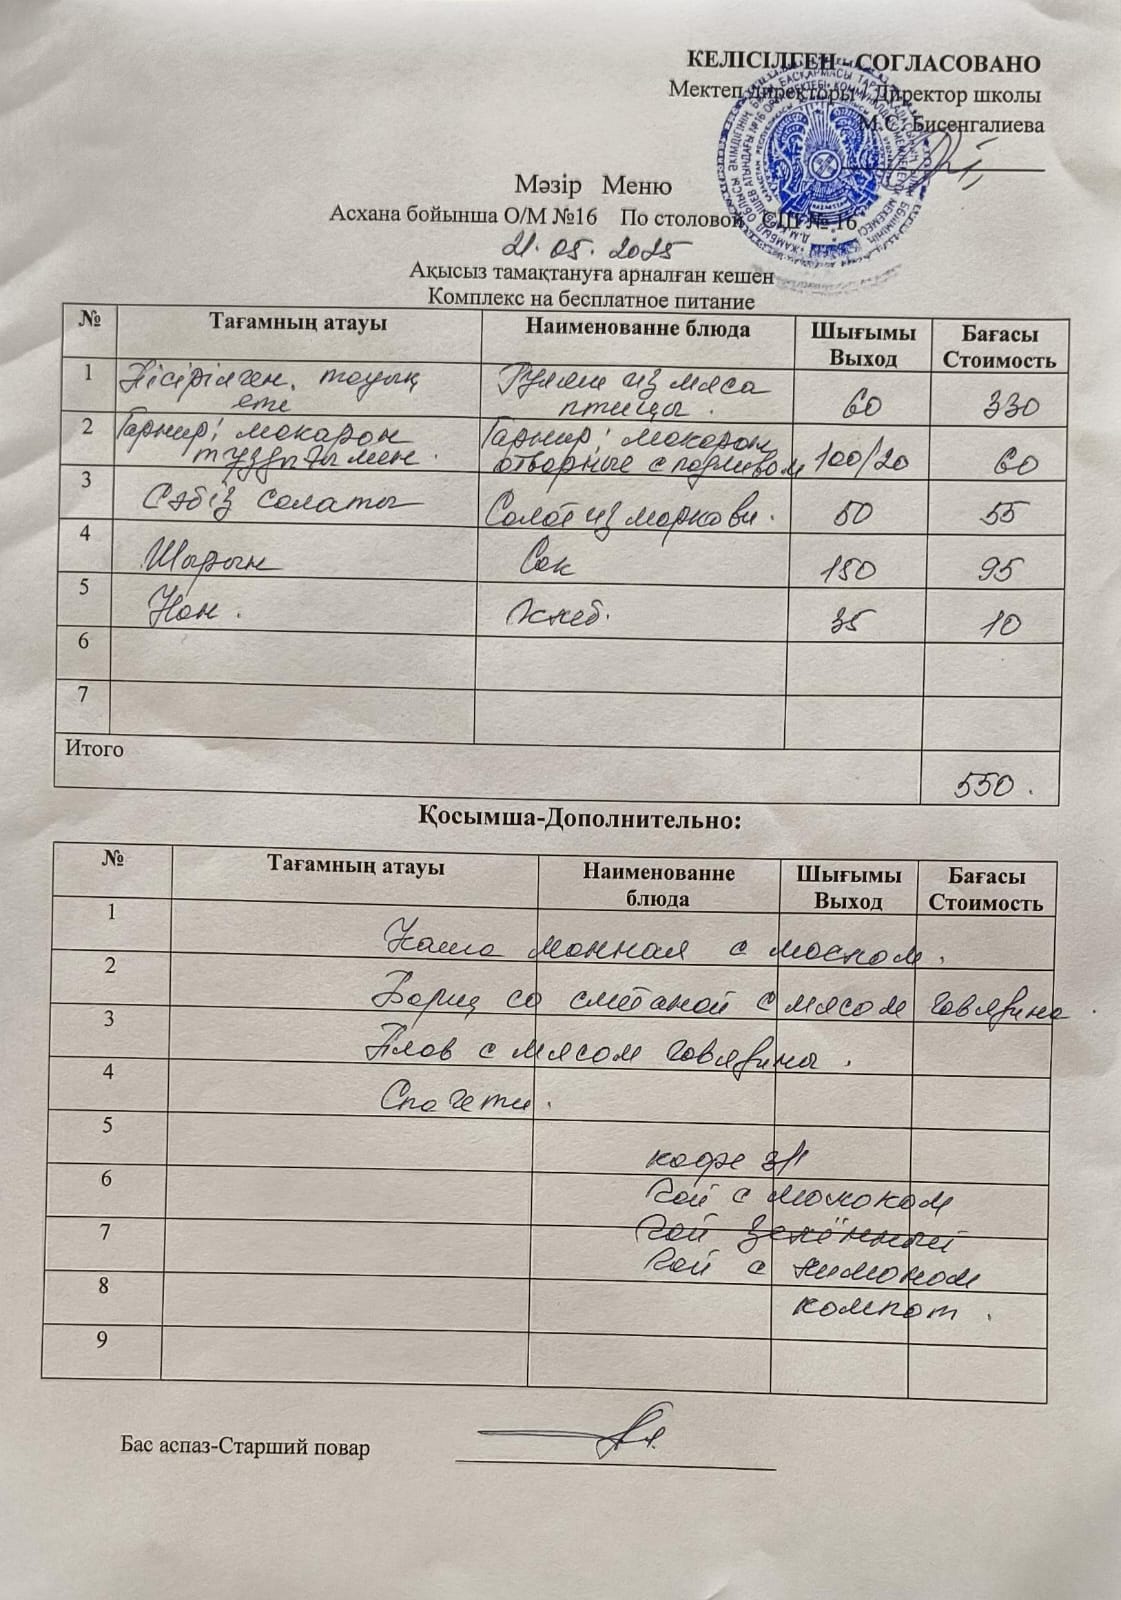 КЕЛІСІЛГЕН СОГЛАСОВАНО
Мектеп директоры Директор школы
М.С. Бисенгалиева
Мәзір Меню
Асхана бойынша О/М №16 По столовой СШ № 16
21.05.2025
Ақысыз тамақтануға арналған кешен
Комплекс на бесплатное питание
№ Тағамның атауы Наименованне блюда Шығымы Выход Бағасы Стоимость
1 Пісірілген тауық еті Гуляш из мяса птицы. 60 330
2 Гарнир: макарон тұздығымен. Гарнир: макароны отварные с подливом 100/20 60
3 Сәбіз салаты Салат из моркови. 50 55
4 Шырын Сок 150 95
5 Нан. Хлеб. 35 10
6
7
Итого 550.
Қосымша-Дополнительно:
№ Тағамның атауы Наименованне блюда Шығымы Выход Бағасы Стоимость
1 Каша манная с маслом.
2 Борщ со сметаной с мясом говядина.
3 Плов с мясом говядина.
4 Спагети.
5 кофе 3/1
6 Чай с молоком
7 Чай зелённый
Чай с лимоном
8 компот.
9
Бас аспаз-Старший повар